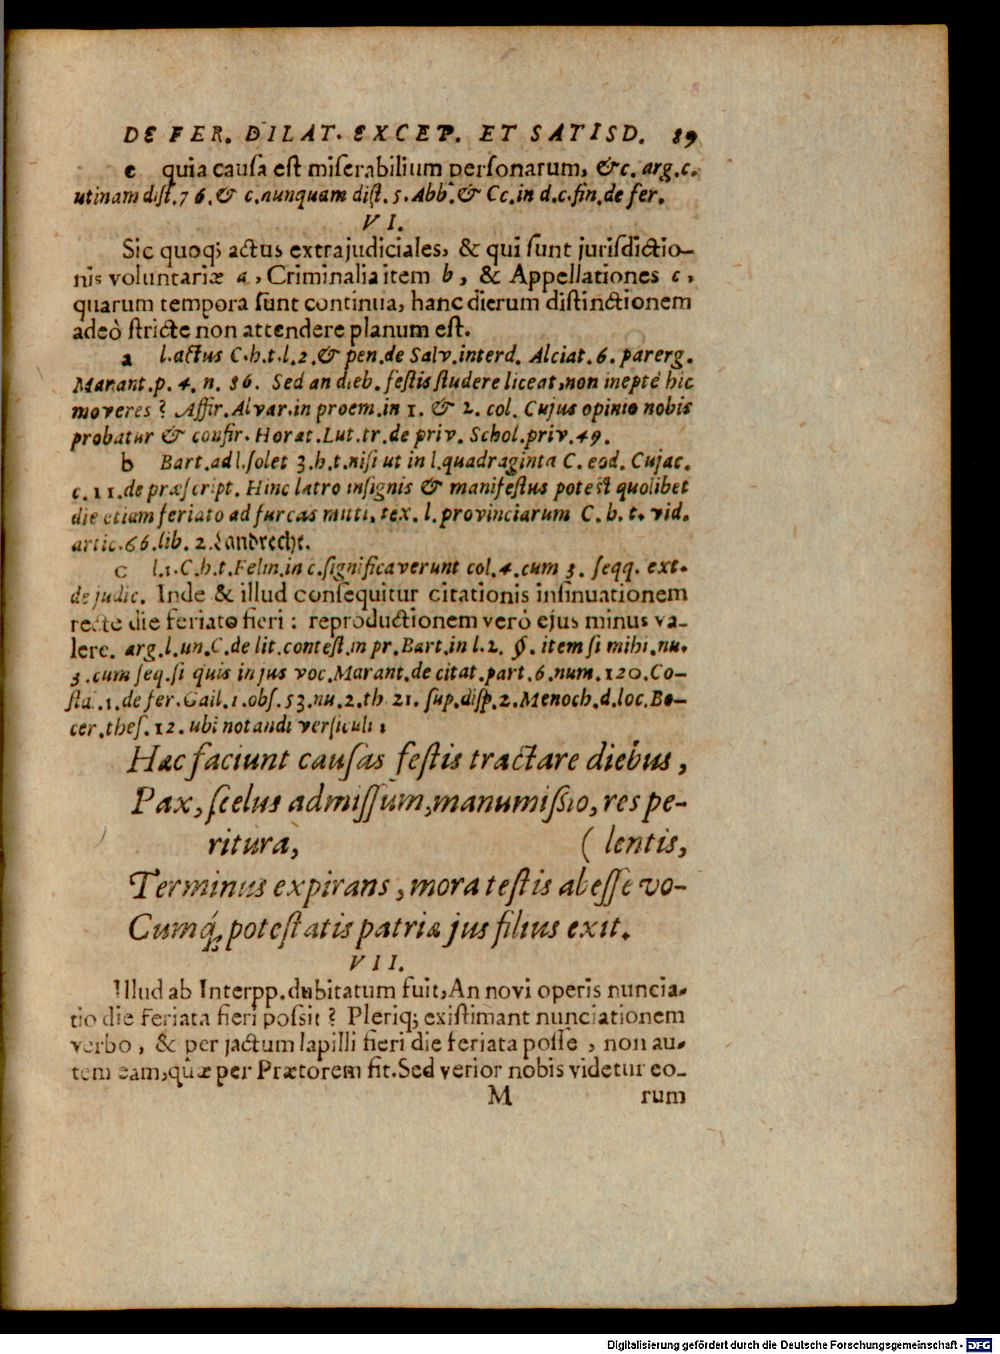 DE FER. DILAT. EXCEP. ET SATISD. 89
e quia causa est miserabilium personarum, &c. arg. c.
utinam dist. 76. & c. nunquam dist. 5. Abb. & Cc. in d. c. fin. de fer.
VI.
Sic quoq; actus extrajudiciales, & qui sunt jurisdictio-
nis voluntariæ a, Criminalia item b, & Appellationes c,
quarum tempora sunt continua, hanc dierum distinctionem
adeò stricte non attendere planum est.
a l. actus C. h. t. l. 2. & pen. de Salv. interd. Alciat. 6. parerg.
Marant. p. 4. n. 86. Sed an dieb. festis studere liceat, non inepte hic
moveres? Affir. Alvar. in proem. in 1. & 2. col. Cujus opinio nobis
probatur & confir. Horat. Lut. tr. de priv. Schol. priv. 49.
b Bart. ad l. solet 3. h. t. nisi ut in l. quadraginta C. eod. Cujac.
c. 11. de præscript. Hinc latro insignis & manifestus potest quolibet
die etiam feriato ad furcas mitti, tex. l. provinciarum C. h. t. vid.
artic. 66. lib. 2. Landrecht.
c l. 1. C. h. t. Felin. in c. significaverunt col. 4. cum 3. seqq. ext.
de judic. Inde & illud consequitur citationis insinuationem
recte die feriato fieri: reproductionem verò ejus minus va-
lere. arg. l. un. C. de lit. contest. in pr. Bart. in l. 2. §. item si mihi. nu.
3. cum seq. si quis in jus voc. Marant. de citat. part. 6. num. 120. Co-
sta. 1. de fer. Gail. 1. obs. 53. nu. 2. th 21. sup. disp. 2. Menoch. d. loc. Bo-
cer. thes. 12. ubi notandi versiculi:
Hæc faciunt causas festis tractare diebus,
Pax, scelus admissum, manumissio, res pe-
ritura, (lentis,
Terminus expirans, mora testis abesse vo-
Cumq; potestatis patriæ jus filius exit.
VII.
Illud ab Interpp. dubitatum fuit, An novi operis nuncia-
tio die feriata fieri possit? Pleriq; existimant nunciationem
verbo, & per jactum lapilli fieri die feriata posse, non au-
tem eam, quæ per Prætorem fit. Sed verior nobis videtur eo-
M rum
Digitalisierung gefördert durch die Deutsche Forschungsgemeinschaft - DFG